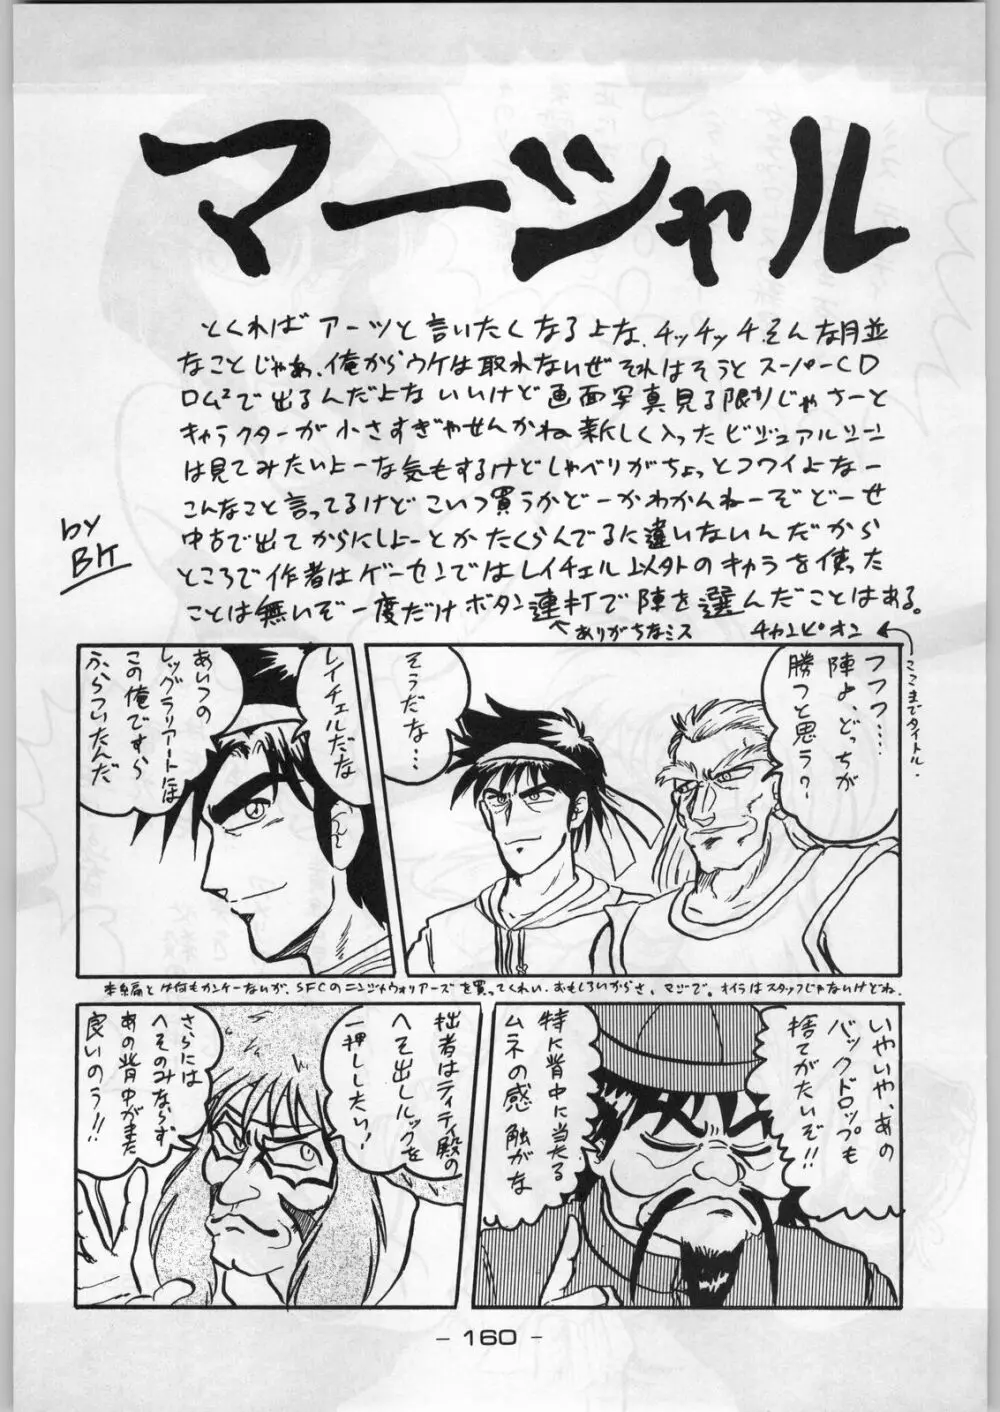 マーシャル
とくればアーツと言いたくなるよな、チッチッチそんな月並
なことじゃあ、俺からウケは取れないぜ それはそうとスーパーCD
ロム²で出るんだよな いいけど画面写真見る限りじゃさーと
キャラクターが小さすぎやせんかね 新しく入ったビジュアルシーン
は見てみたいよーな気もするけどしゃべりがちょっとコワイよなー
こんなこと言ってるけどこいつ買うかどーかわかんねーぞ どーせ
中古で出てからにしよーとかたくらんでるに違いないんだから
ところで作者はゲーセンではレイチェル以外のキャラを使った
ことは無いぞ一度だけボタン連打で陣を選んだことはある。
by
BK
↖ありがちなミス
チャンピオン
←ここまでタイトル.
フフフ……
陣よ、どっちが
勝つと思う?
そうだな…
レイチェルだな
あいつの
レッグラリアートは
この俺ですら
ふらついたんだ
本編とは何もカンケーないが、SFCのニンジャウォリアーズを買ってくれい.おもしろいからさ、マジで。オイラはスタッフじゃないけどね.
いやいや、あの
バックドロップも
捨てがたいぞ!!
特に背中に当たる
ムネの感触がな
拙者はティティ殿の
へそ出しルックを
一押ししたい!
さらには
へそのみならず
あの背中がまた
良いのう!!
- 160 -